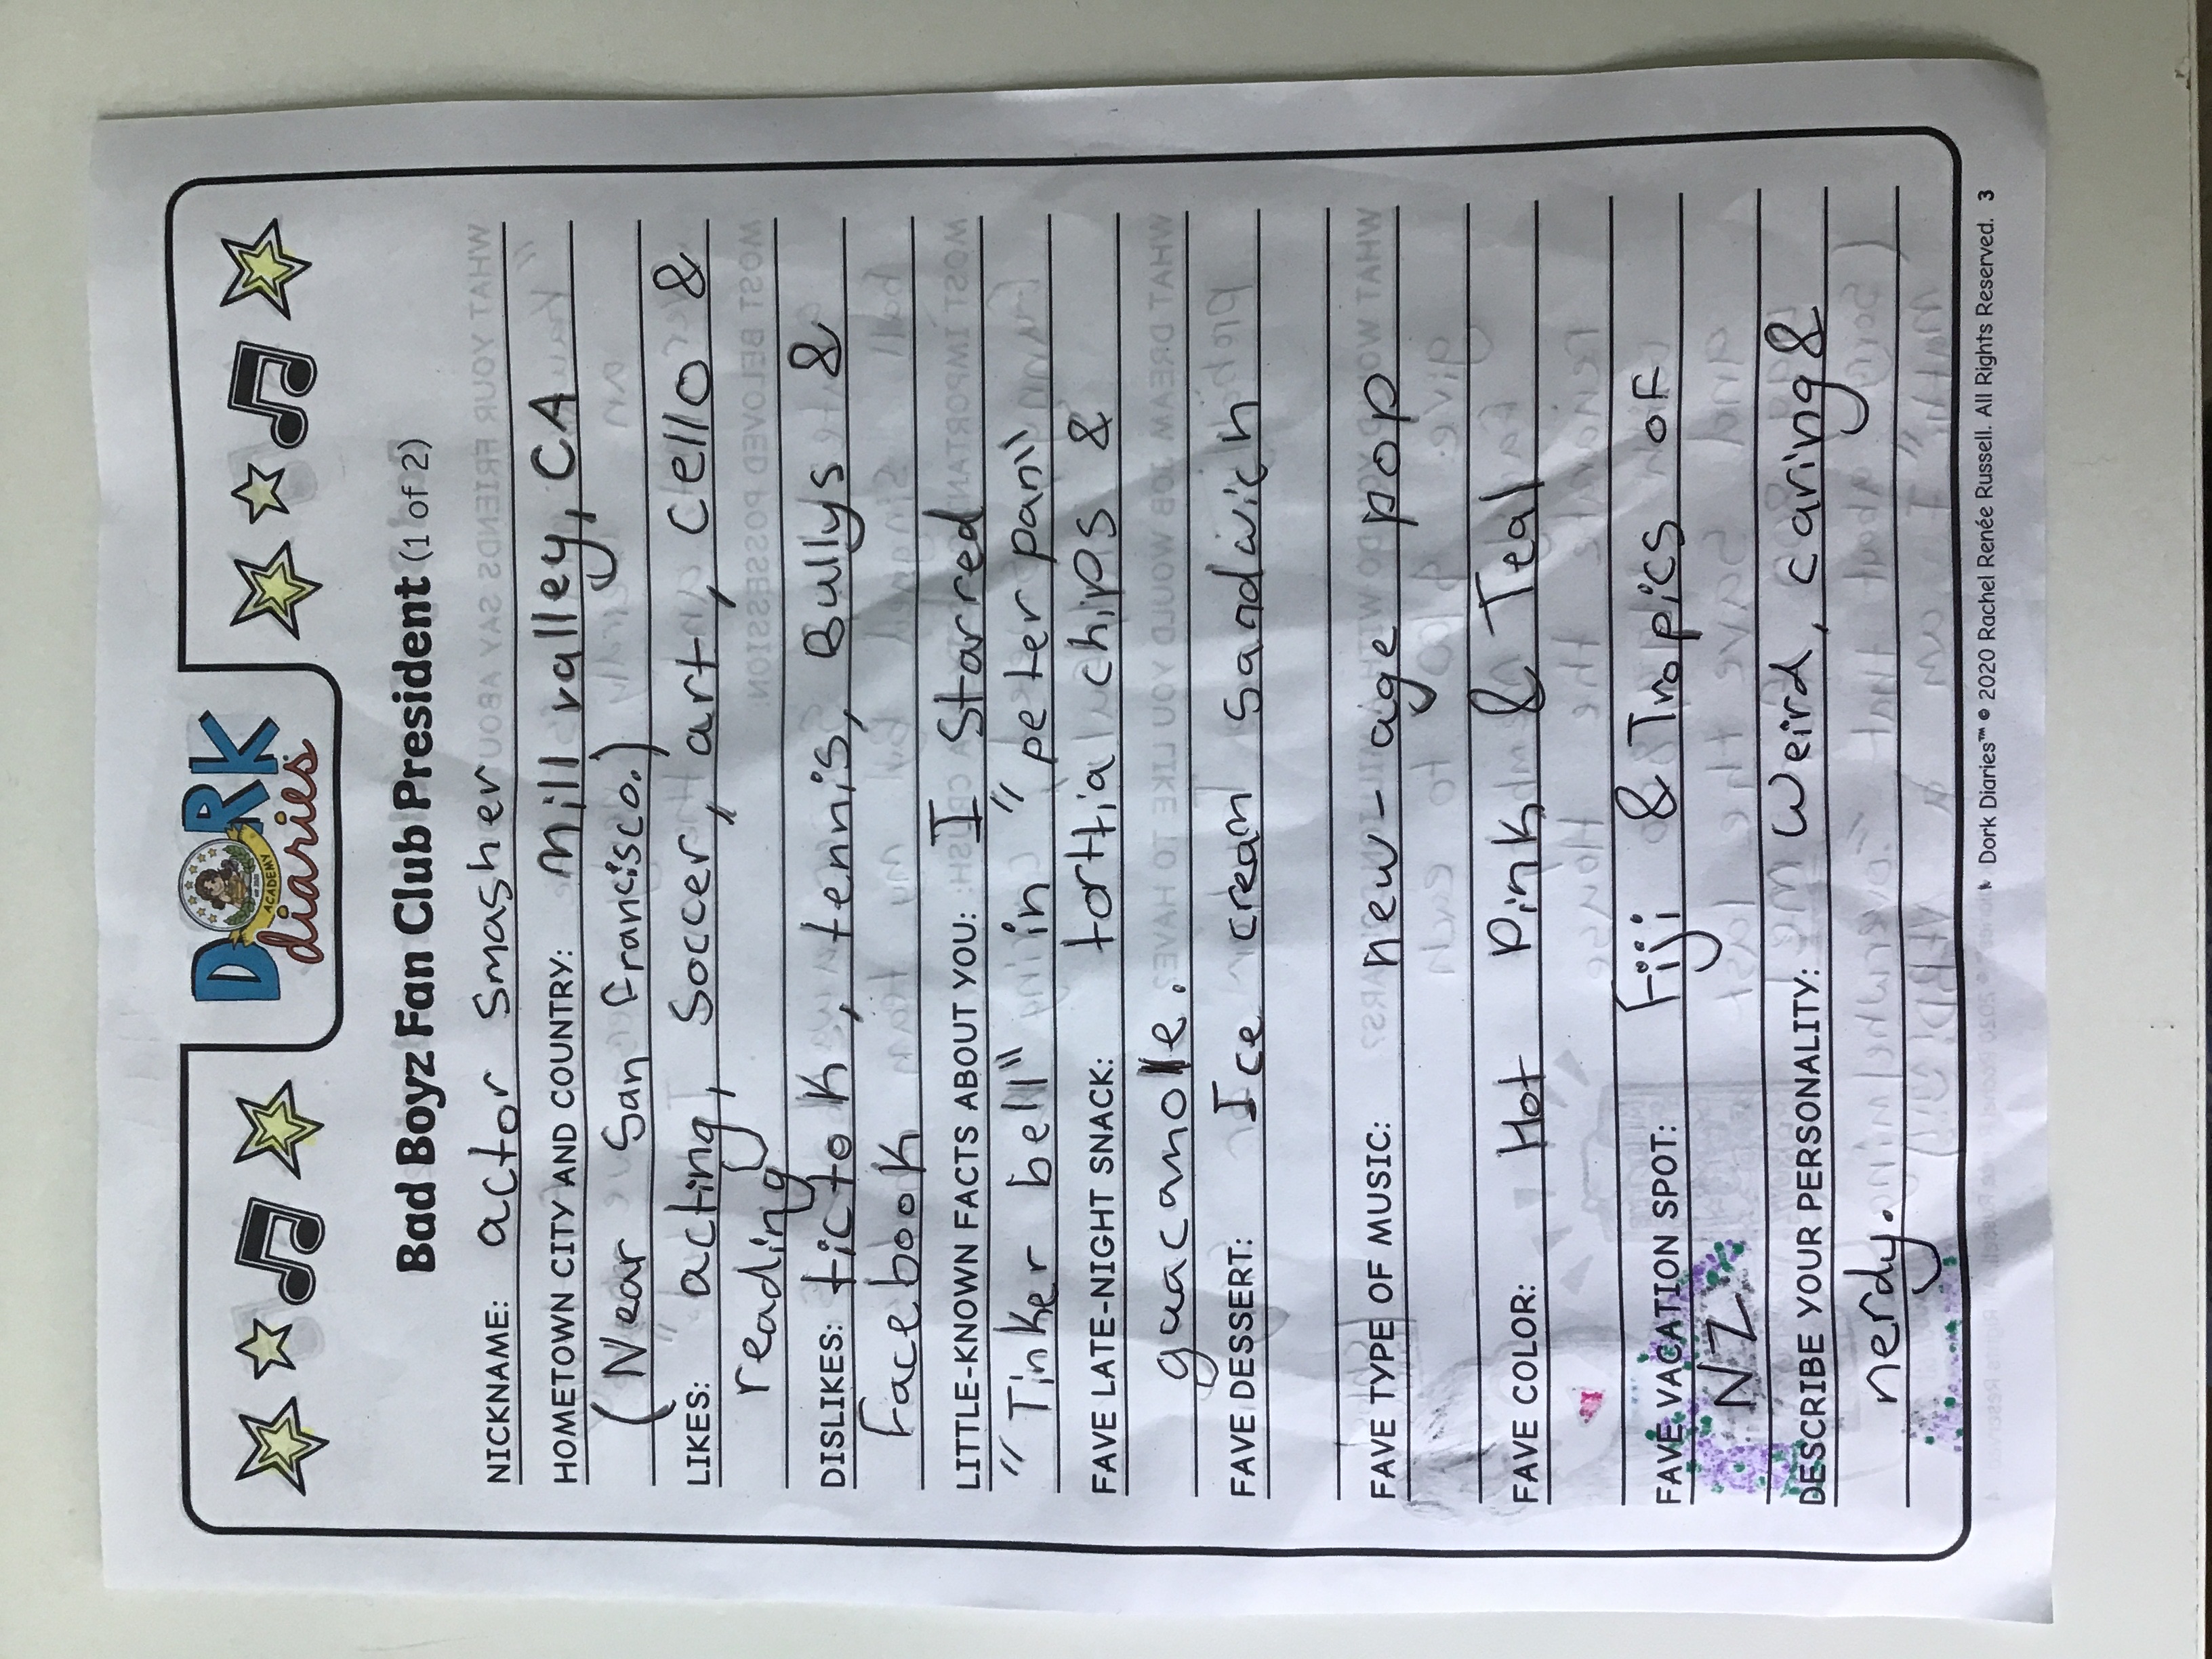 DORK
ACADEMY
diaries
Bad Boyz Fan Club President (1 of 2)
NICKNAME: actor smasher
HOMETOWN CITY AND COUNTRY: Mill valley, CA
(Near San francisco.)
LIKES: acting, Soccer, art, cello &
reading
DISLIKES: tictok, tennis, Bullys &
facebook
LITTLE-KNOWN FACTS ABOUT YOU: I starred
"Tinker bell" in "peter pan"
FAVE LATE-NIGHT SNACK: tortia chips &
guacamole.
FAVE DESSERT: Ice cream sandwich
FAVE TYPE OF MUSIC: new-age pop
FAVE COLOR: Hot Pink & Teal
FAVE VACATION SPOT: Fiji & Tropics of
NZ
DESCRIBE YOUR PERSONALITY: Weird, caring &
nerdy.
Dork Diaries™ © 2020 Rachel Renée Russell. All Rights Reserved. 3